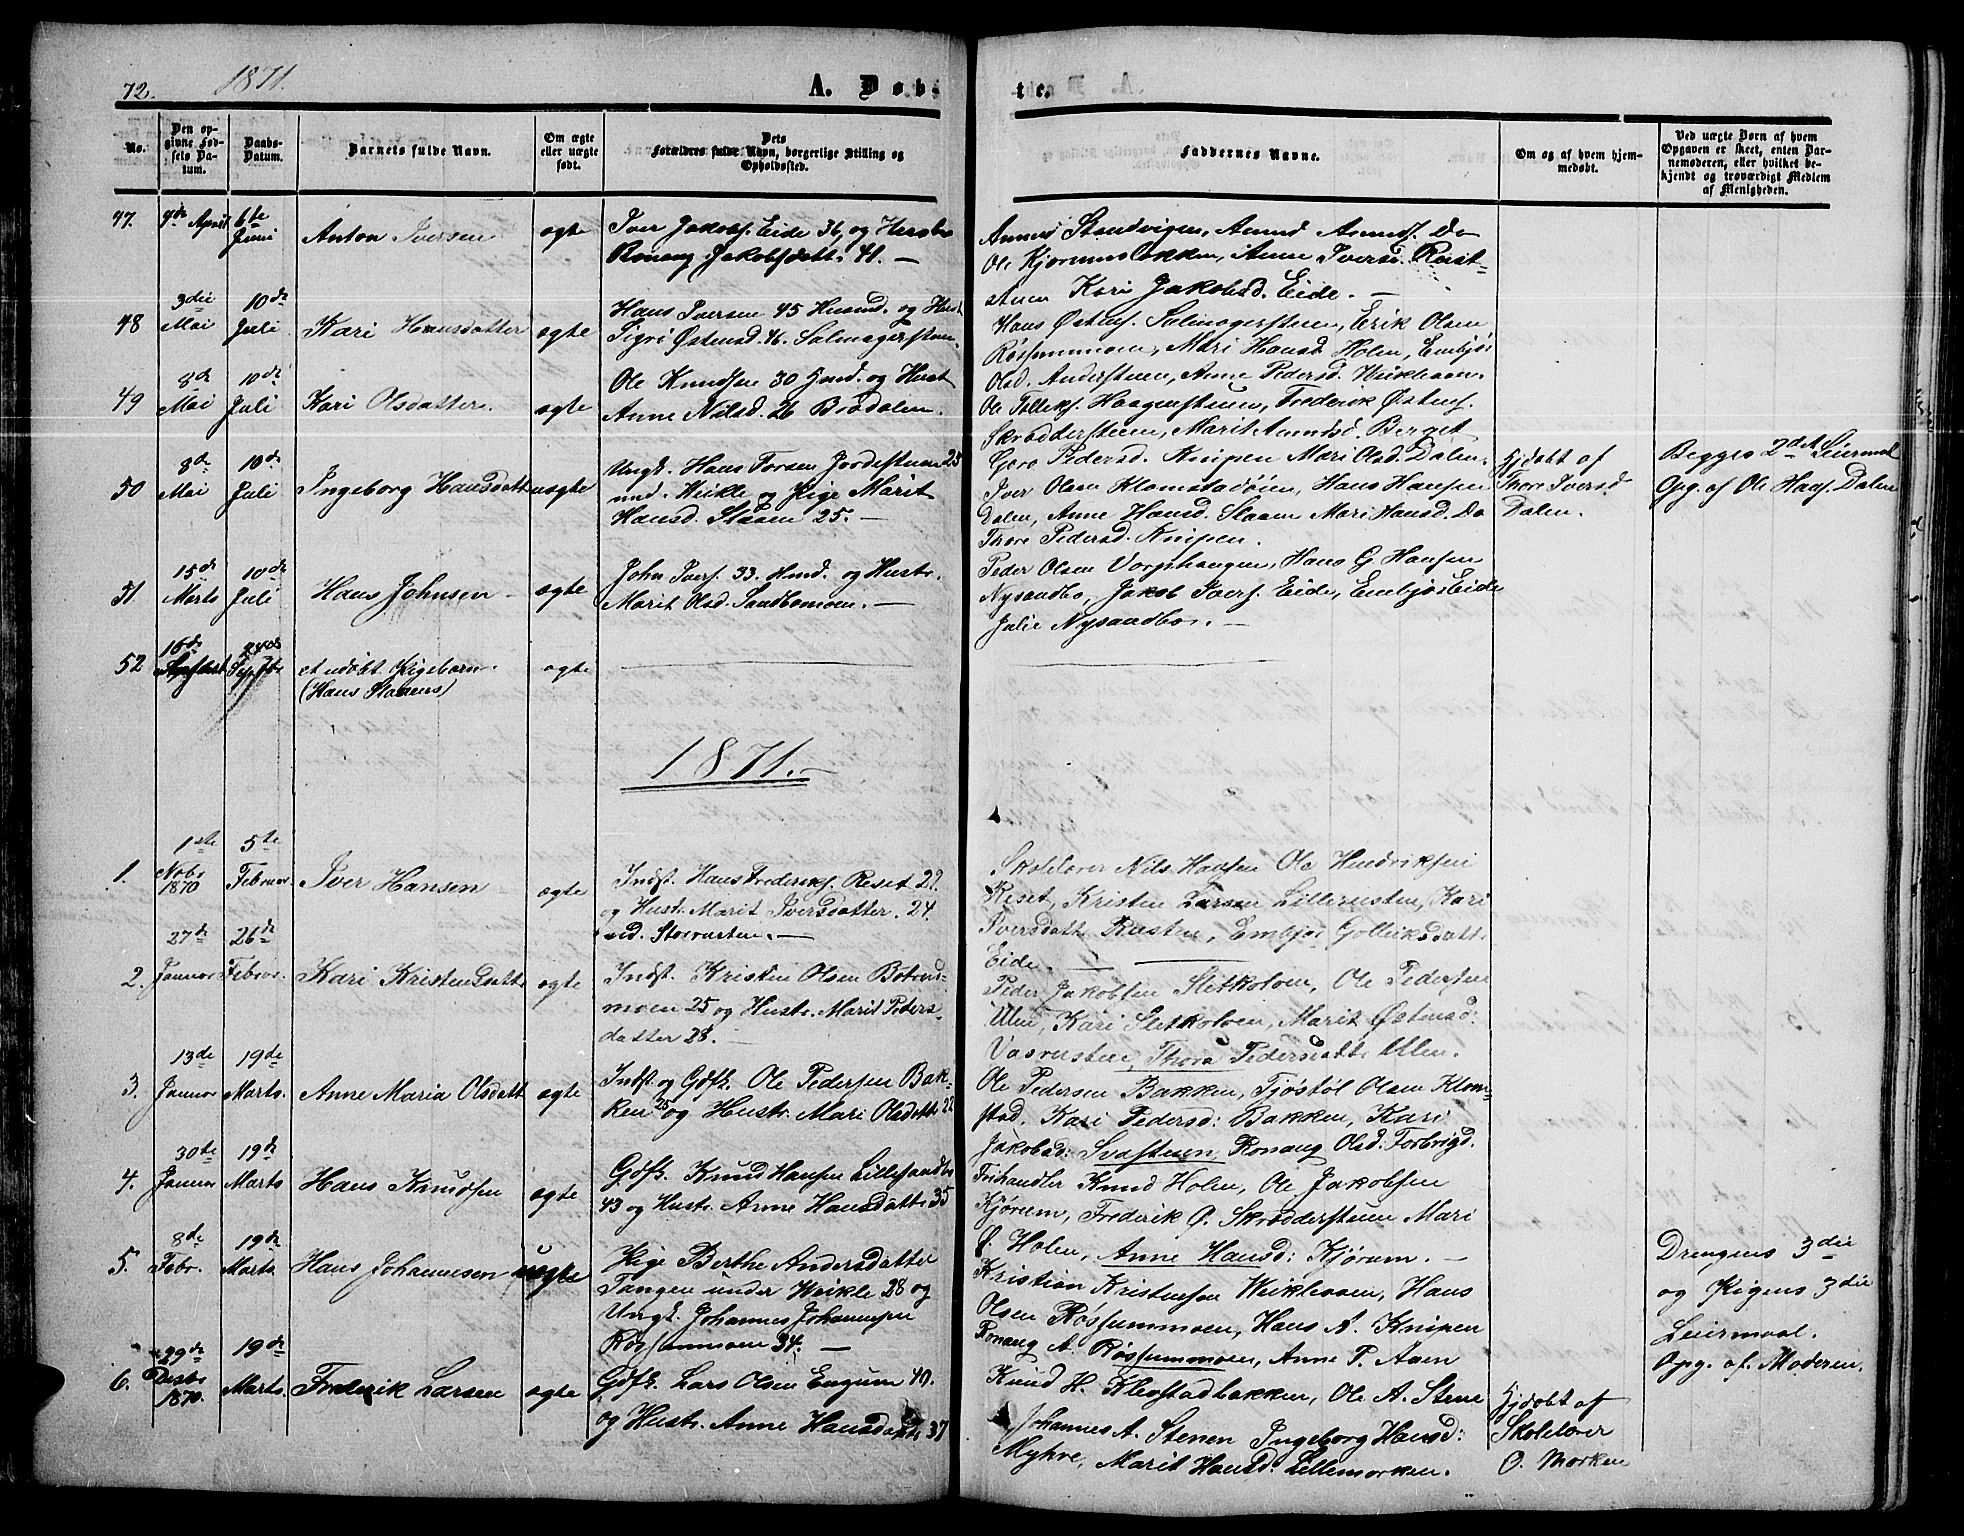 72.
1871.
A. Døb-
te.
No.
Den op-
givne Fød-
sels Da-
tum.
Daabs-
Datum.
Barnets fulde Navn.
Om ægte
eller uægte
født.
Dets
Forældres fulde Navn, borgerlige Stilling og
Opholdssted.
Faddernes Navne.
Om og af hvem hjem-
medøbt.
Ved uægte Børn af hvem
Opgaven er skeet, enten Bar-
nemoderen, eller hvilket be-
kjendt og troværdigt Medlem
af Menigheden.
47.
7de April
6te
Juni
Anton Iversen
ægte
Iver Jakobs. Eide 36, og Hustru
Ronaug Jakobsdatt. 41. —
Strandvigen, Amund Amunds. Do
Ole Kjørumsløkken, Anne Iversd. Rust-
stuen Kari Jakobsd. Eide. —
48
3die
Mai
10de
Juli
Kari Hansdatter
ægte
Hans Iversen 45 Husmd. og Hust
Sigri Østensd. 46. Salmagerstuen.
Hans Østens. Salmagerstuen, Erik Olsen
Røssummoen, Mari Hansd. Holen, Embjør
Olsd. Anderstuen, Anne Pedersd. Veiklevon.
49
8de
Mai
10de
Juli
Kari Olsdatter
ægte
Ole Knudsen 30 Hmd. og Hust
Anne Nilsd. 26 Brodalen.
Ole Haagenstuen, Frederik Østens.
Skrædderstuen, Marit Amundsd. Berget
50
8de
Mai
10de
Juli
Ingeborg Hansdatt
uægte
Ungk. Hans Torsen Jordestuen 25
und. Veikle og Pige Marit
Hansd. Slaaen 25. —
Pedersd. Knipen Mari Olsd. Dalen.
Iver Olsen Klomstadøien, Hans Hansen
Dalen, Anne Hansd. Slaaen Mari Hansd. Do
Thore Pedersd. Knipen.
Hjdøbt af
Thore Iversd
Dalen.
Begges 2det Leiermaal
Opg. af Ole Hans. Dalen
51
15de
Marts
10de
Juli
Hans Johnsen
ægte
John Ivers. 33. Hmd. og Hustr.
Marit Olsd. Sandbomoen. —
Peder Olsen Vorphaugen, Hans G. Hansen
Nysandbo, Jakob Ivers. Eide, Embjør Eide
Julie Nysandbo. —
52
16de
August
24de
Septbr
et udøbt Pigebarn.
(Hans Slaaens)
ægte
1871. —
1.
1ste
Novbr
1870
5te
Februar
Iver Hansen
ægte
Indst. Hans Frederiks. Reset 29.
og Hustr. Marit Iversdatter. 24.
und. Storrusten. —
Skolelærer Nils Hansen Ole Hendriksen
Reset, Kristen Larsen Lillerusten, Kari
Iversdatt. Rusten, Embjør Gollieksdatt.
Eide. —
2.
27de
Januar
26de
Februar.
Kari Kristensdatt.
ægte
Indst. Kristen Olsen
moen 25 og Hustr. Marit Peders-
datter 28. —
Peder Jakobsen Sletkolven, Ole Pedersen
Ulen, Kari Sletkolven, Marit Østensd:
Vasrusten, Thora Pedersdatt. Ulen.
3.
13de
Januar
19de
Marts.
Anne Maria Olsdatt.
ægte
Indst. og Gdfk. Ole Pedersen Bak-
ken 25 og Hustr. Mari Olsdatt. 22
Ole Pedersen Bakken, Tjøstøl Olsen Klom-
stad. Kari Pedersd: Bakken, Kari
Jakobsd: Svastuen, Ronaug Olsd: Forbrigd.
4.
30te
Januar
19de
Marts
Hans Knudsen
ægte
Gdfk. Knud Hansen Lillesandbo
43 og Hustr. Anne Hansdatt. 35
Frihandler Knud Holen, Ole Jakobsen
Kjørum, Frederik Ø. Skrædderstuen Mari
J. Holen, Anne Hansd: Kjørum. —
5.
8de
Febr.
19de
Marts.
Hans Johannesen
uægte
Pige Berthe Andersdatter
Tangen under Veikle 28 og
Ungk. Johannes Johannesen
Røssummoen 34. —
Kristian Kristensen Veiklevoen, Hans
Olsen Røssummoen, Hans A. Knipen
Ronaug A. Røssummoen, Anne P. Aaen
Drengens 3die
og Pigens 3die
Leiermaal.
Opg. af Moderen.
6.
29de
Desbr
1870.
19de
Marts.
Frederik Larsen
ægte
Gdfk. Lars Olsen Enguun 40.
og Hustr. Anne Hansdatt. 37
Knud H. Klevstadbakken, Ole A. Stene
Johannes A. Stenen Ingeborg Hansd:
Myhre, Marit Hansd. Lillemorken.
Hjdøbt af
Skolelærer
O. Morken